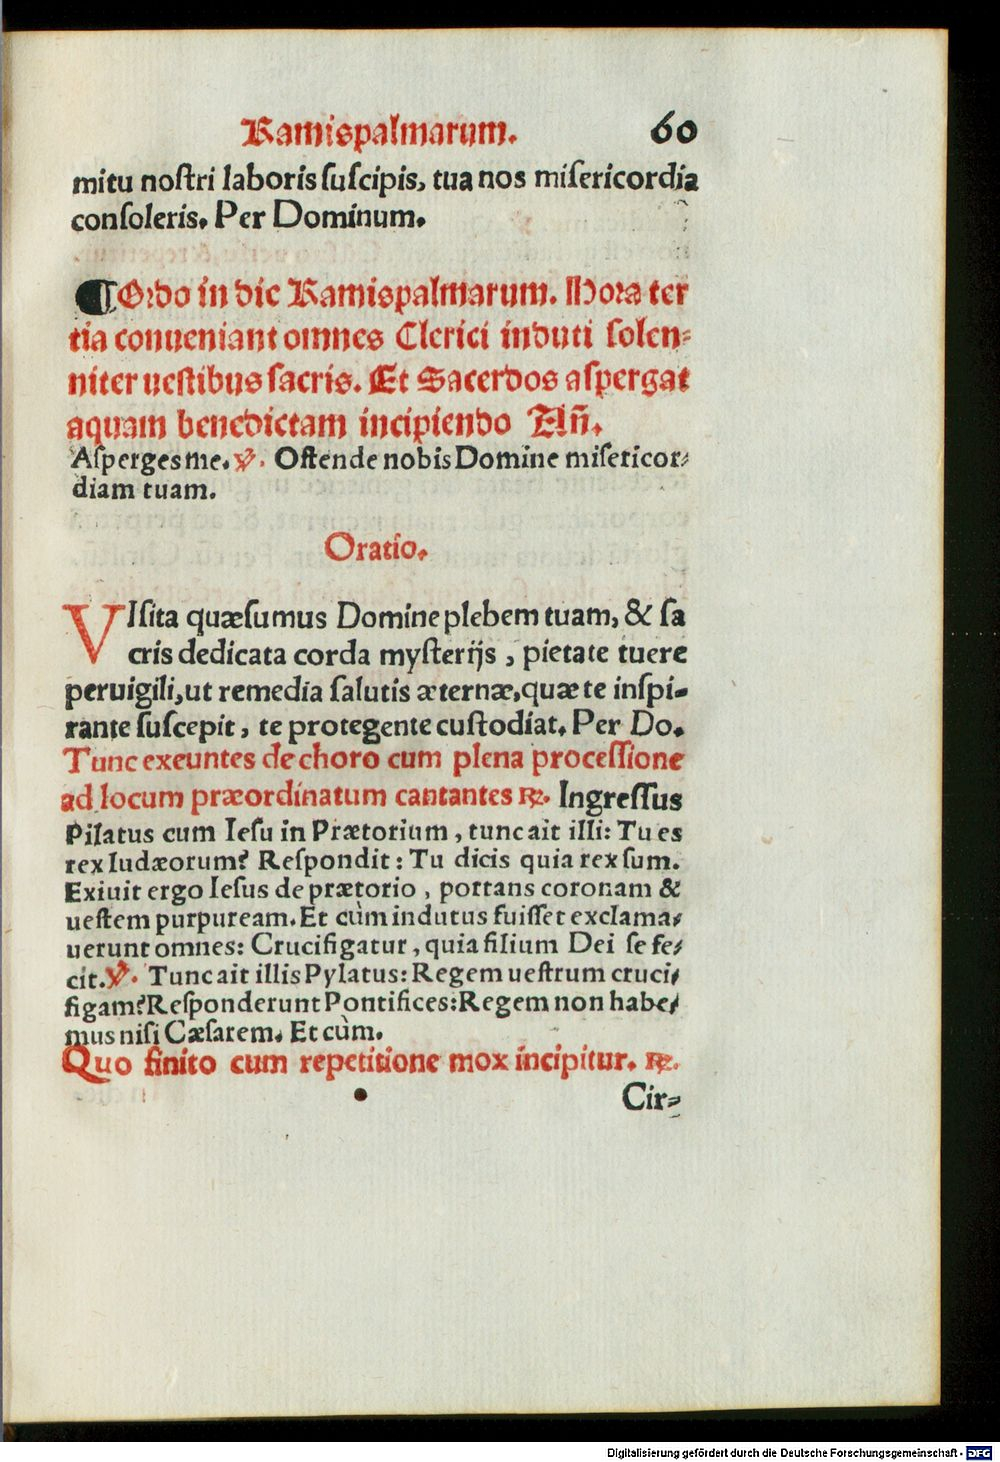 Ramispalmarum. 60
mitu noſtri laboris ſuſcipis, tua nos miſericordia
conſoleris. Per Dominum.
¶ Ordo in die Ramispalmarum. Hora ter
tia conueniant omnes Clerici induti ſolen⸗
niter ueſtibus ſacris. Et Sacerdos aſpergat
aquam benedictam incipiendo Añ.
Aſperges me. ℣. Oſtende nobis Domine miſericor⸗
diam tuam.
Oratio.
VIſita quæſumus Domine plebem tuam, & ſa
cris dedicata corda myſterijs, pietate tuere
peruigili, ut remedia ſalutis æternæ, quæ te inſpi⸗
rante ſuſcepit, te protegente cuſtodiat. Per Do.
Tunc exeuntes de choro cum plena proceſſione
ad locum præordinatum cantantes ℞. Ingreſſus
Pilatus cum Ieſu in Prætorium, tunc ait illi: Tu es
rex Iudæorum? Reſpondit: Tu dicis quia rex ſum.
Exiuit ergo Ieſus de prætorio, portans coronam &
ueſtem purpuream. Et cùm indutus fuiſſet exclama⸗
uerunt omnes: Crucifigatur, quia filium Dei ſe fe⸗
cit. ℣. Tunc ait illis Pylatus: Regem ueſtrum cruci⸗
figam? Reſponderunt Pontifices: Regem non habe⸗
mus niſi Cæſarem. Et cùm.
Quo finito cum repetitione mox incipitur. ℞.
Cir⸗
Digitalisierung gefördert durch die Deutsche Forschungsgemeinschaft - DFG